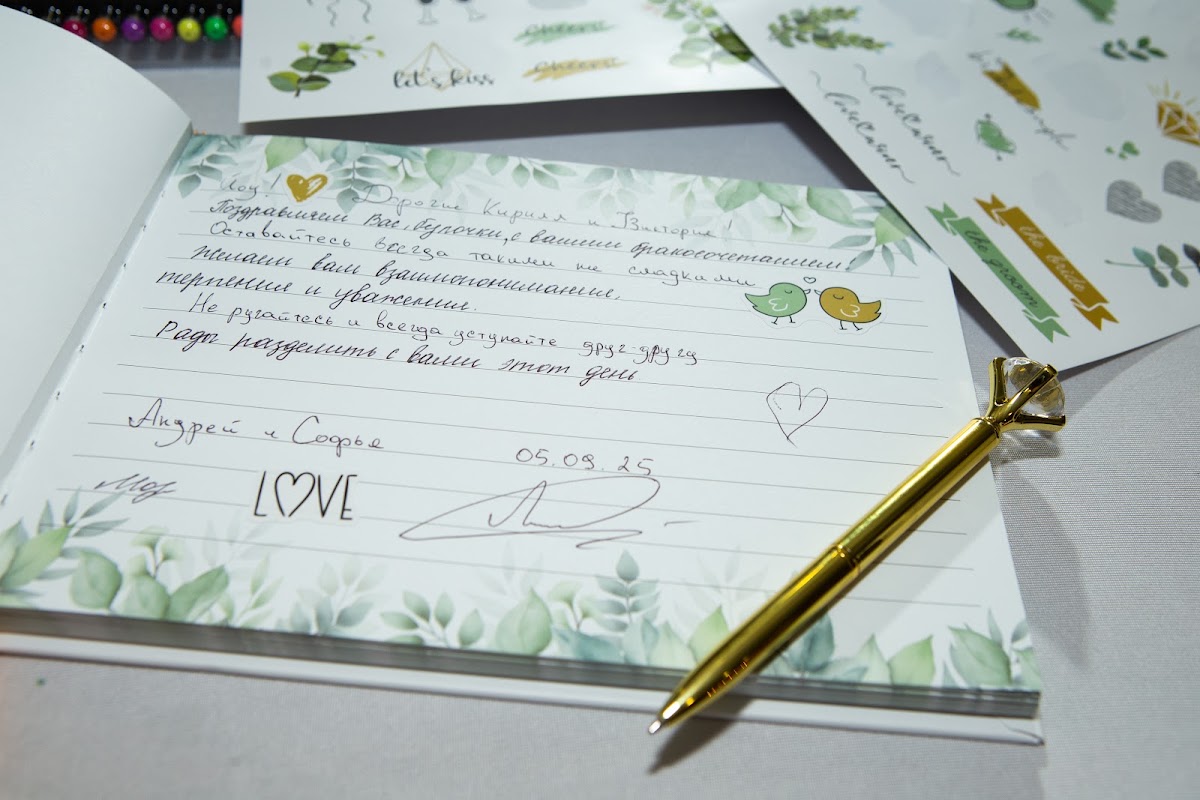 let's kiss
cheers
cheers
the bride
the groom
Йоу! Дорогие Кирилл и Виктория!
Поздравляем Вас, булочки, с вашим бракосочетанием.
Оставайтесь всегда такими же сладкими
Желаем вам взаимопонимания,
терпения и уважения.
Не ругайтесь и всегда уступайте друг-другу
Рады разделить с вами этот день
Андрей и Софья
05.09.25
LOVE